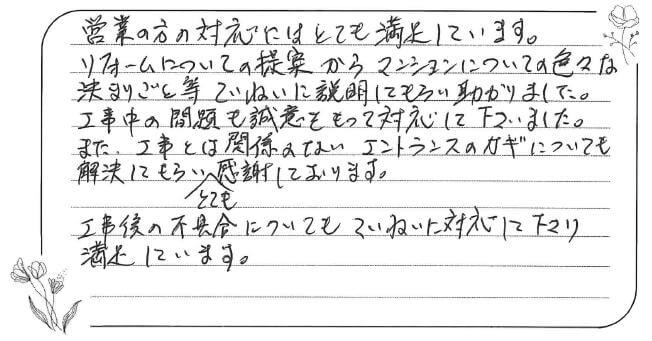 営業の方の対応にはとても満足しています。
リフォームについての提案からマンションについての色々な
決まりごと等ていねいに説明してもらい助かりました。
工事中の問題も誠意をもって対応して下さいました。
また、工事とは関係のないエントランスのカギについても
解決してもらい感謝しております。
とても
工事後の不具合についてもていねいに対応して下さり
満足しています。